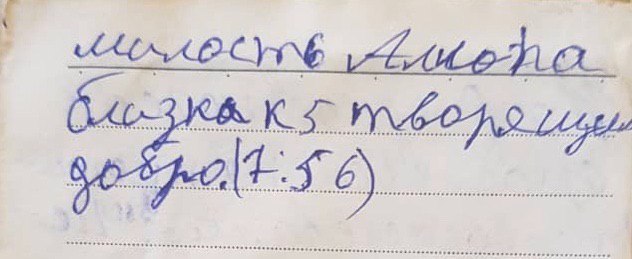 милость Аллоҳа
близка к5 творящим
добро.(7:56)